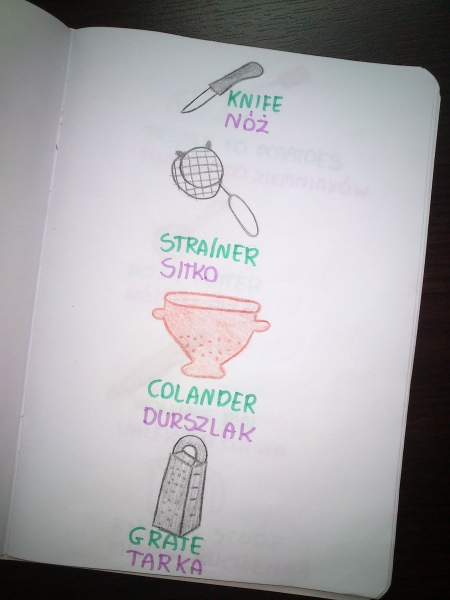 KNIFE
NÓŻ
STRAINER
SITKO
COLANDER
DURSZLAK
GRATE
TARKA